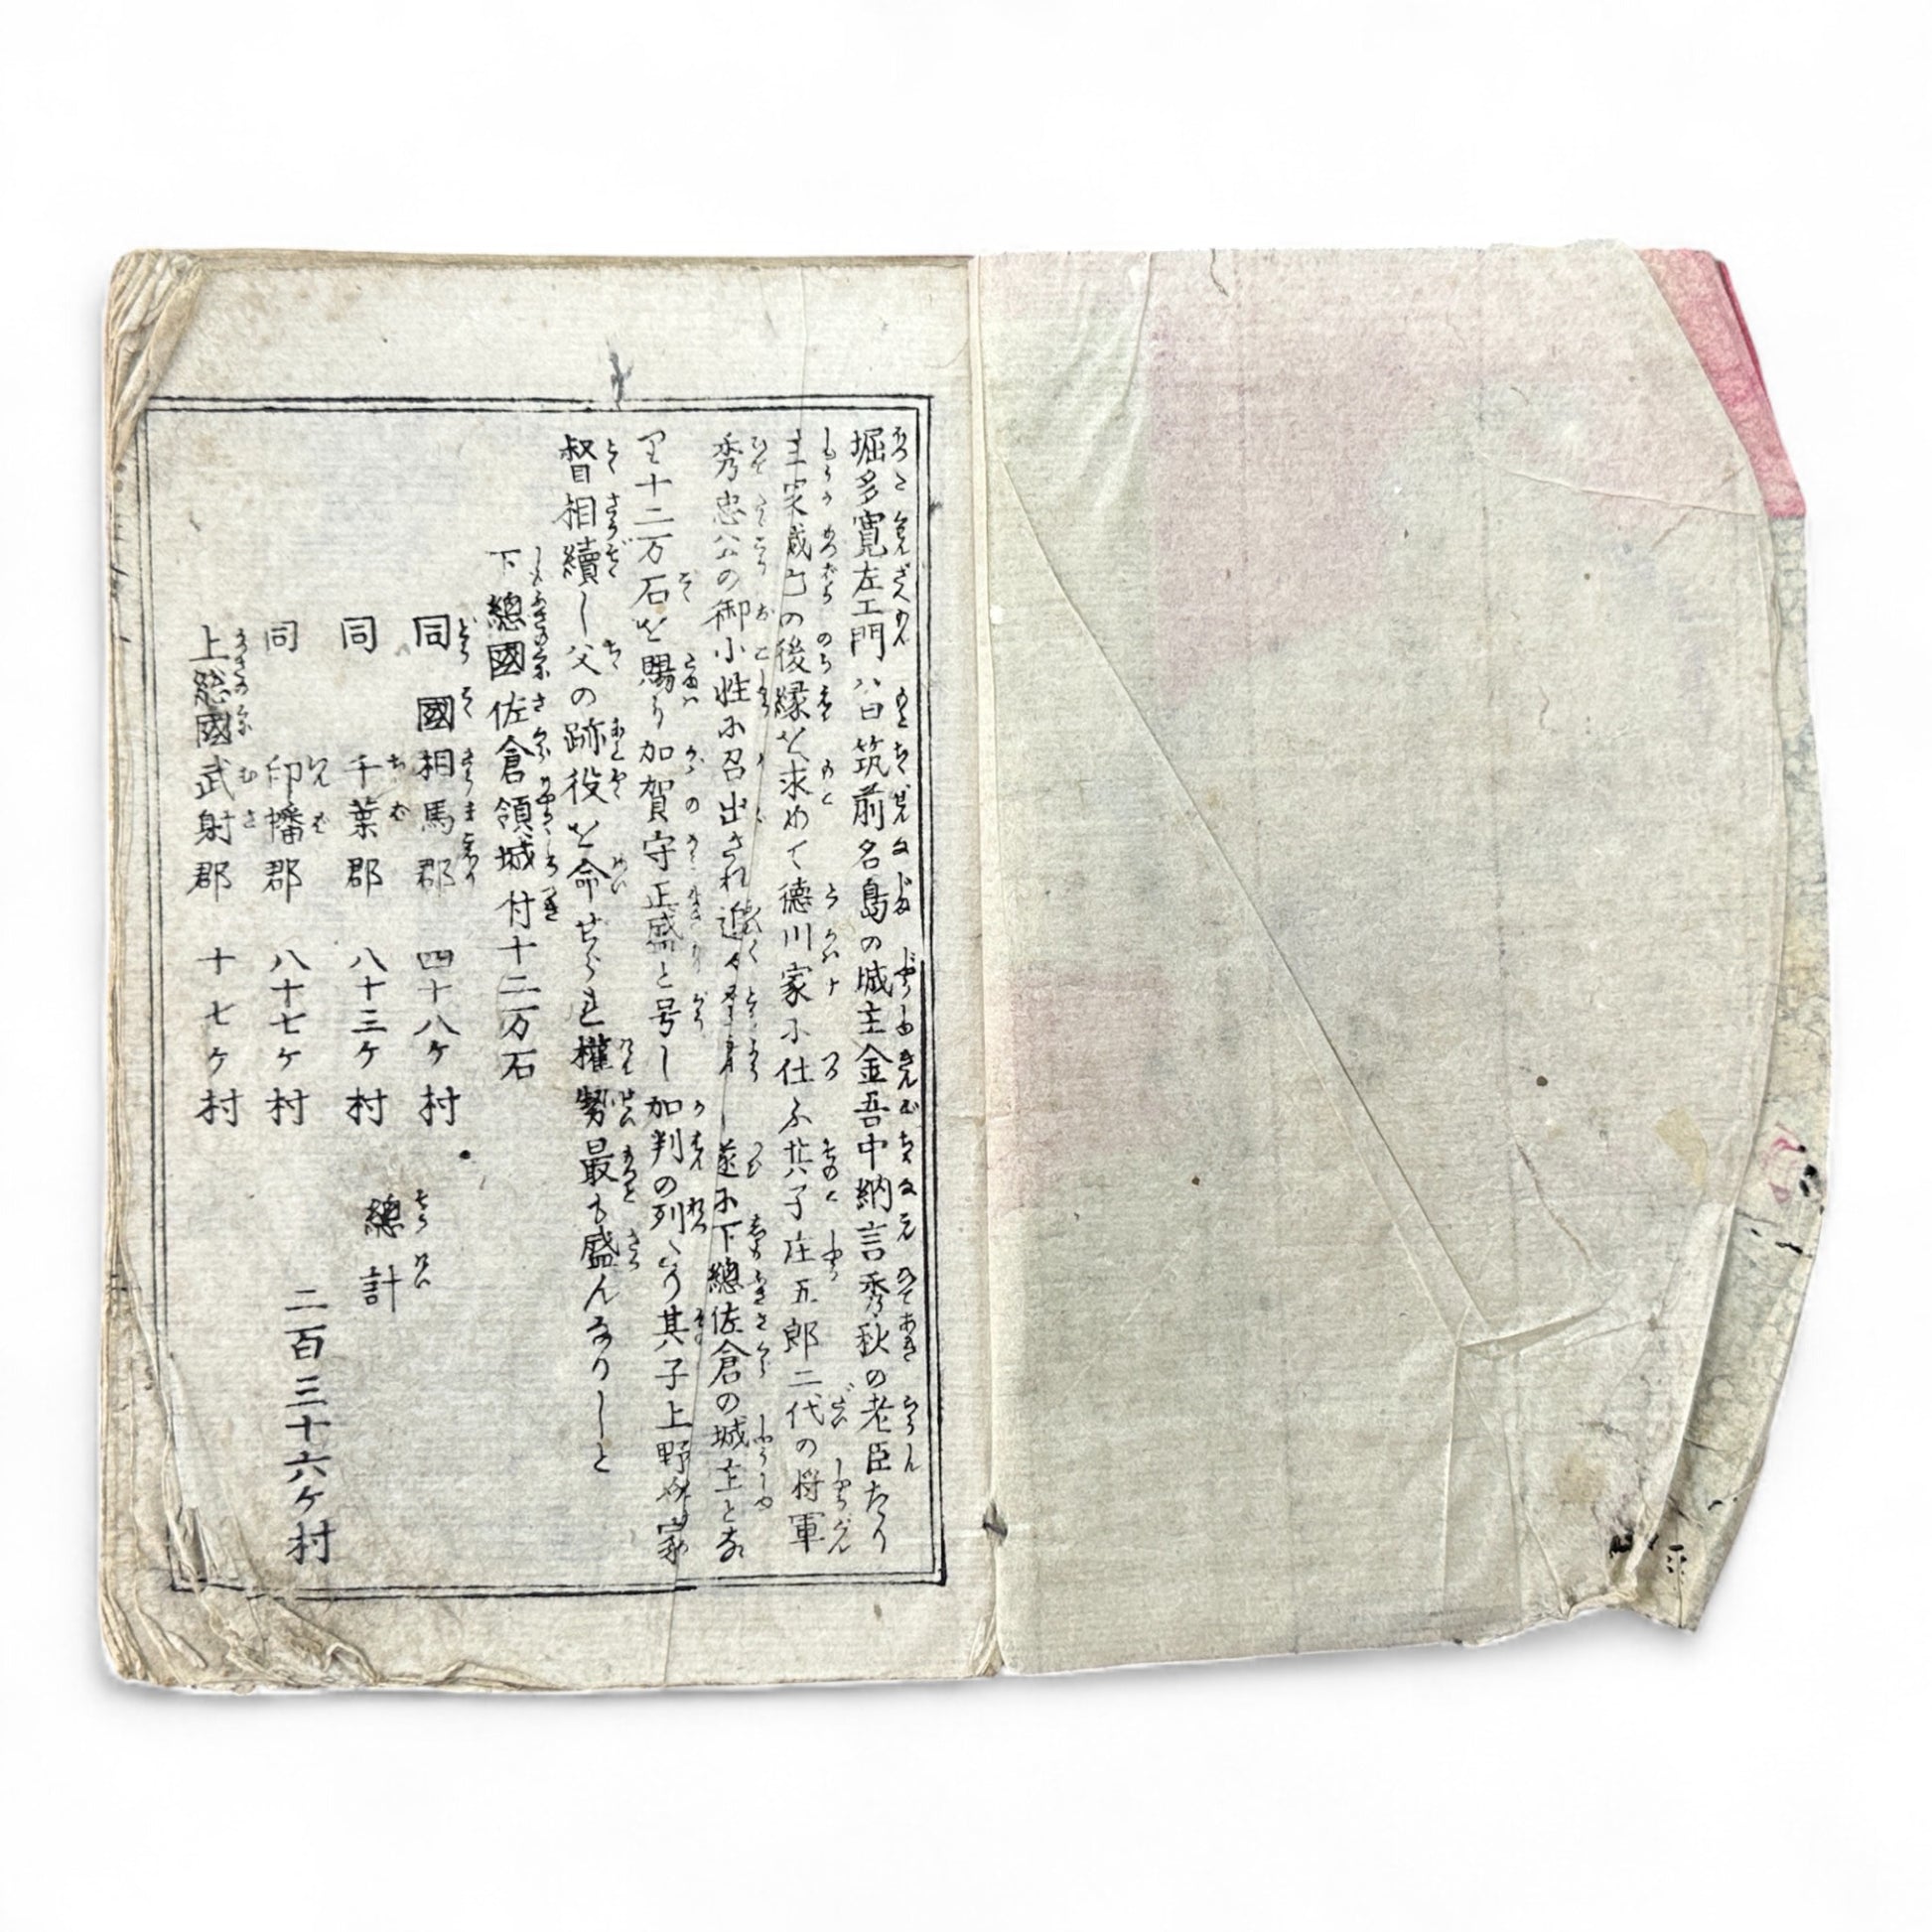 堀多寛左エ門ハ旧筑前名島の城主金吾中納言秀秋の老臣たり
主家滅亡の後縁を求めて徳川家に仕ふ其子庄五郎二代の将軍
秀忠公の御小性に召出され追々し遂に下總佐倉の城主とな
り十二万石を賜り加賀守正盛と号し加判の列に其子上野介家
督相續し父の跡役を命ぜられ權勢最も盛んなりしと
下總國佐倉領城付十二万石
同國相馬郡 四十八ヶ村
同 千葉郡 八十三ヶ村
同 印旛郡 八十七ヶ村
上総國武射郡 十七ヶ村
總計
二百三十六ヶ村